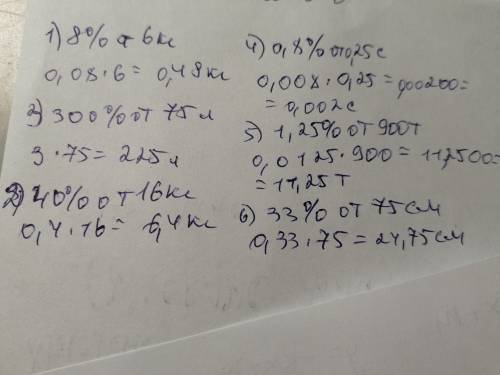 1) 8% от 6кг
0,08·6=0,48кг
2) 300% от 75 л
3·75=225л
3) 40% от 16кг
0,4·16=6,4кг
4) 0,8% от 0,25с
0,008·0,25=0,00200=
=0,002с
5) 1,25% от 900т
0,0125·900=11,2500=
=11,25т
6) 33% от 75см
0,33·75=24,75см